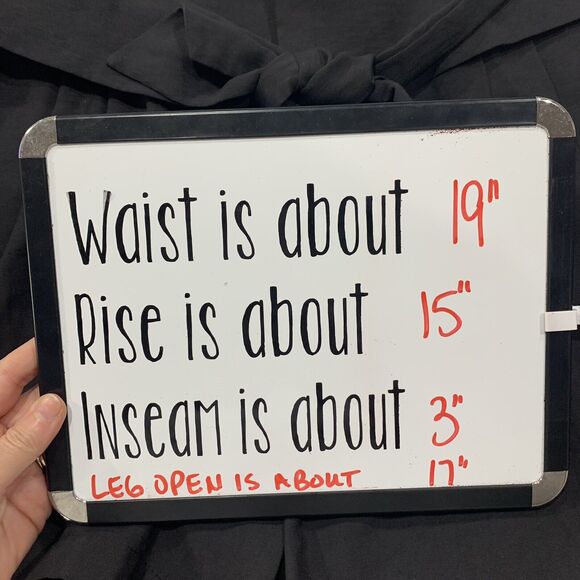 Waist is about 19"
Rise is about 15"
Inseam is about 3"
LEG OPEN IS ABOUT 17"